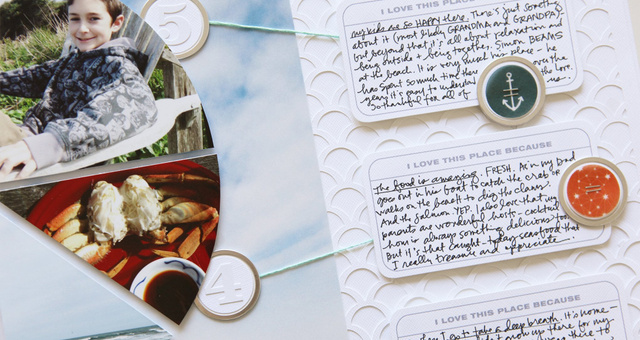 5
my kids are SO HAPPY here. There's just something
about it (most likely GRANDMA and GRANDPA)
but beyond that, it's all about relaxation and
being outside + being together. Simon BEAMS
at the beach. It is very much his place - he
has spent so much time there over the
years it's easy to understand the love.
So thankful for all of
I LOVE THIS PLACE BECAUSE
The food is amazing. FRESH. As in my Dad
goes out in his boat to catch the crab or
walks on the beach to dig the clams
And the salmon YEP. I also love that my
parents are wonderful host - cocktail
hour is always something delicious too
But it's that caught-today seafood that
I really treasure and appreciate.
4
I LOVE THIS PLACE BECAUSE
I go to take a deep breath. It's home -
grow up there for my